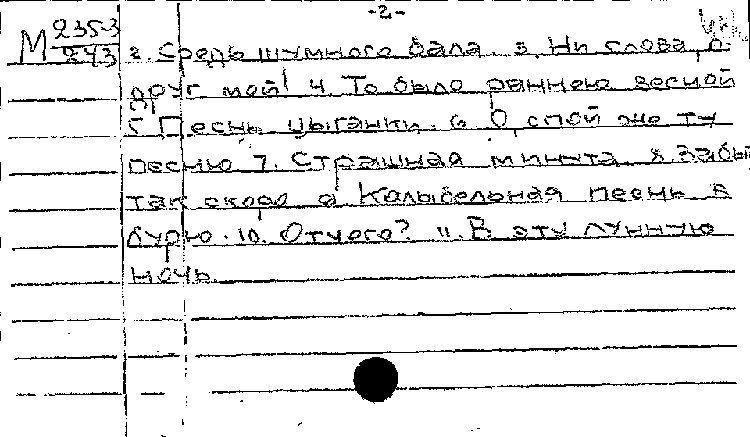 -2-
М 2353/243
2. Средь шумного бала. 3. Ни слова, о
друг мой! 4. То было раннею весной
5 Песнь цыганки. 6. О, спой же ту
песню 7. Страшная минута. 8 Забыть
так скоро 9 Колыбельная песнь в
бурю. 10. Отчего? 11. В эту лунную
ночь